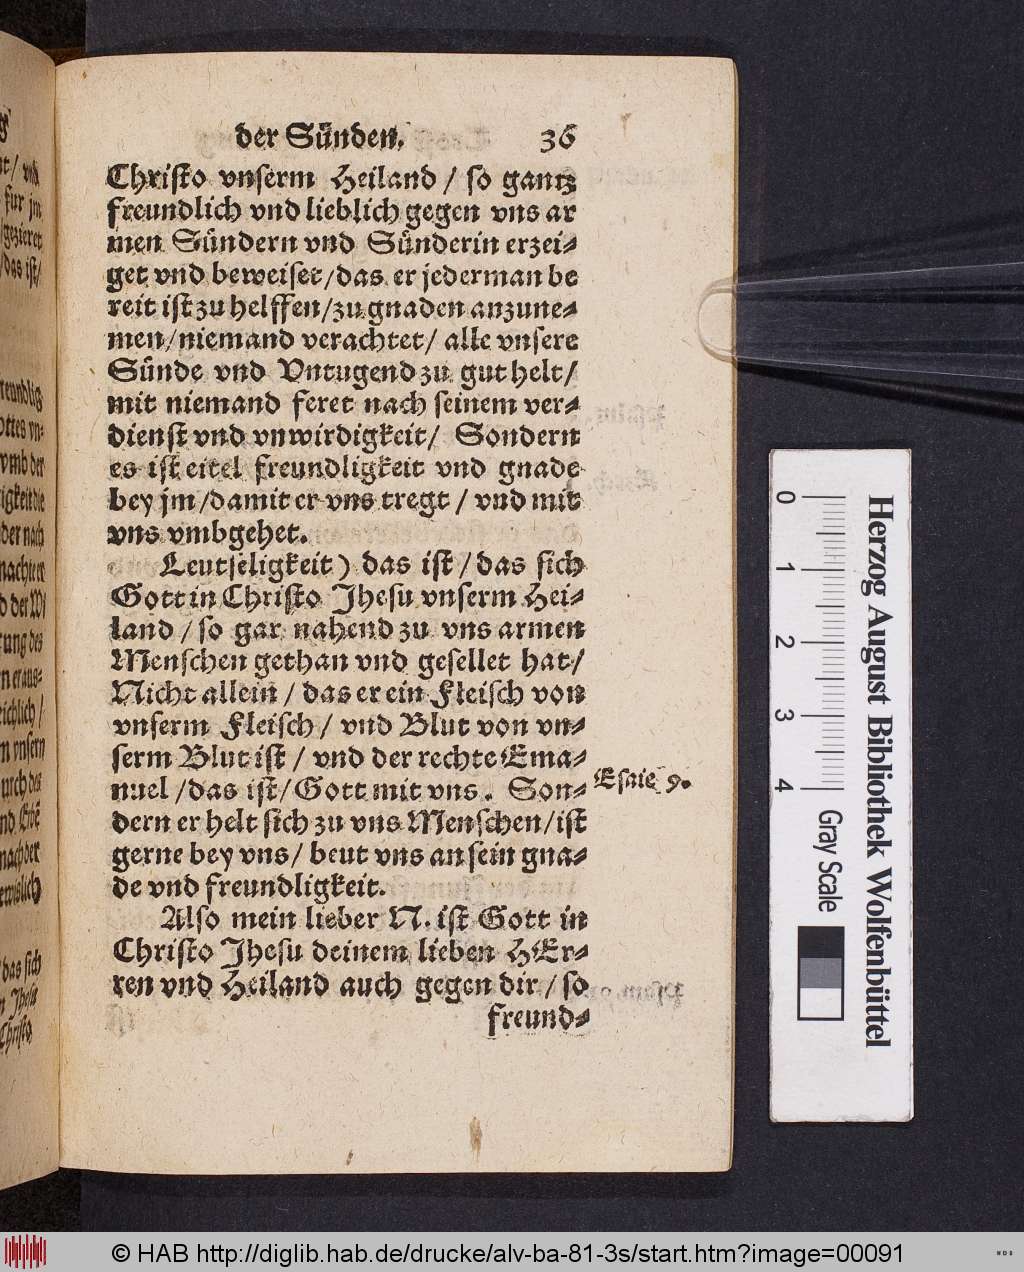 der Sünden. 36
Christo vnserm Heiland / so gantz
freundlich vnd lieblich gegen vns ar
men Sündern vnd Sünderin erzei-
get vnd beweiset/das er jederman be
reit ist zu helffen/zu gnaden anzune-
men/niemand verachtet/ alle vnsere
Sünde vnd Vntugend zu gut helt/
mit niemand feret nach seinem ver-
dienst vnd vnwirdigkeit/ Sondern
es ist eitel freundligkeit vnd gnade
bey jm/damit er vns tregt / vnd mit
vns vmbgehet.
Leutseligkeit) das ist / das sich
Gott in Christo Jhesu vnserm Hei-
land / so gar nahend zu vns armen
Menschen gethan vnd gesellet hat/
Nicht allein / das er ein Fleisch von
vnserm Fleisch / vnd Blut von vn-
serm Blut ist / vnd der rechte Ema-
nuel /das ist/ Gott mit vns. Son-
Esaie 9.
dern er helt sich zu vns Menschen/ist
gerne bey vns/ beut vns an sein gna-
de vnd freundligkeit.
Also mein lieber N. ist Gott in
Christo Jhesu deinem lieben HEr-
ren vnd Heiland auch gegen dir / so
freund-
0 1 2 3 4
Gray Scale
Herzog August Bibliothek Wolfenbüttel
© HAB http://diglib.hab.de/drucke/alv-ba-81-3s/start.htm?image=00091